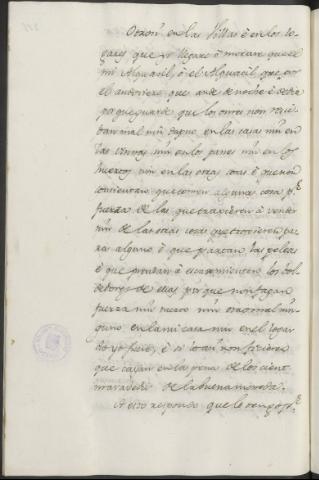 Otrosi en las Villas ò en los lo-
gares que yo llegare à morar que el
mi Alguacil, ò el Alguacil que por
el andoviere que ande de noche è de dia
è que guarde que los omes non reciban
mal nin daguo en las casas nin en
las viñas nin en los panes nin en los
huertos nin en las otras cosas è que non
consientan que tomen alguna cosa por
fuerza de las que traxieren à vender
nin de las otras cosas que troxieren pa-
ra alguno è que partan las peleas
è que prendan à escarmienten los bol-
dedores de ellas por que non fagan
fuerza nin tuerto nin otro mal nin-
guno en la mi casa nin en el logar
do yo fuere, è si lo asi non ficieren
que cayan en la pena de los cient
maravedis de la buena moneda.
A esto respondo que lo tengo por